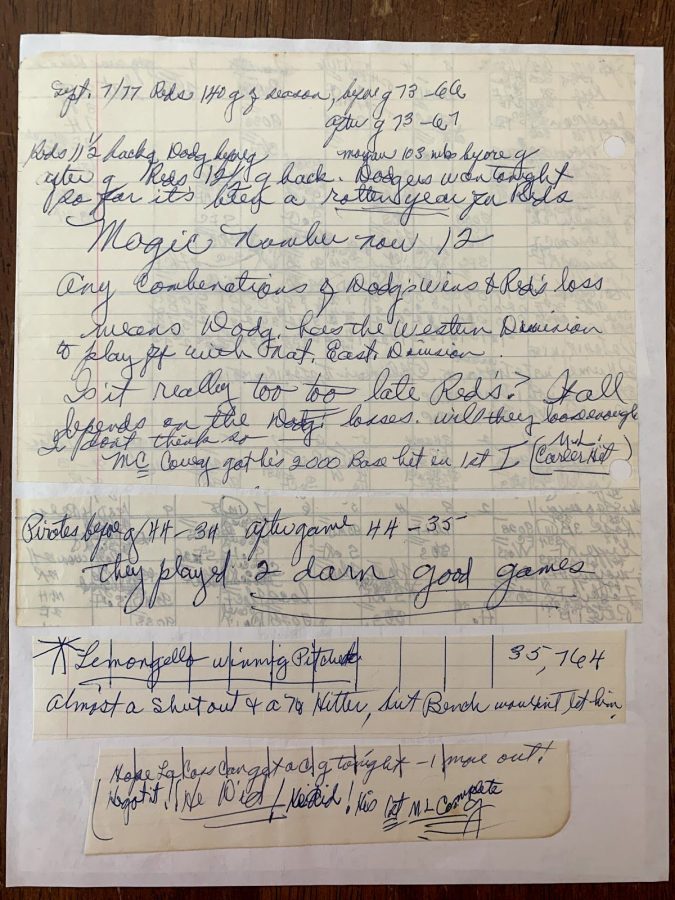 Sept. 7/77 Reds 140 g of season, before g 73-66
after g 73-67
Reds 11 1/2 back of Dodg before g
Morgan 103 before g
after g Reds 12 1/2 g back. Dodgers won tonight
so far it's been a rotten year for Reds
Magic Number now 12
Any Combenations of Dodg's wins & Red's loss
means Dodg has the Western Division
to play off with Nat. East. Division.
Is it really too too late Red's? It all
depends on the Dodg losses. will they loose enough
I don't think so
Mc Covey got his 2000 Base hit in 1st I (M.L. Career Hit)
Pirates before g 44-34 after game 44-35
they played 2 darn good games
Lemongello winning Pitcher 35,764
almost a shut out & a Hitter, but Bench wouldn't let him.
Hope La Coss can get a cg tonight - 1 more out!
He got it!! He Did! He Did! His 1st ML Complete g